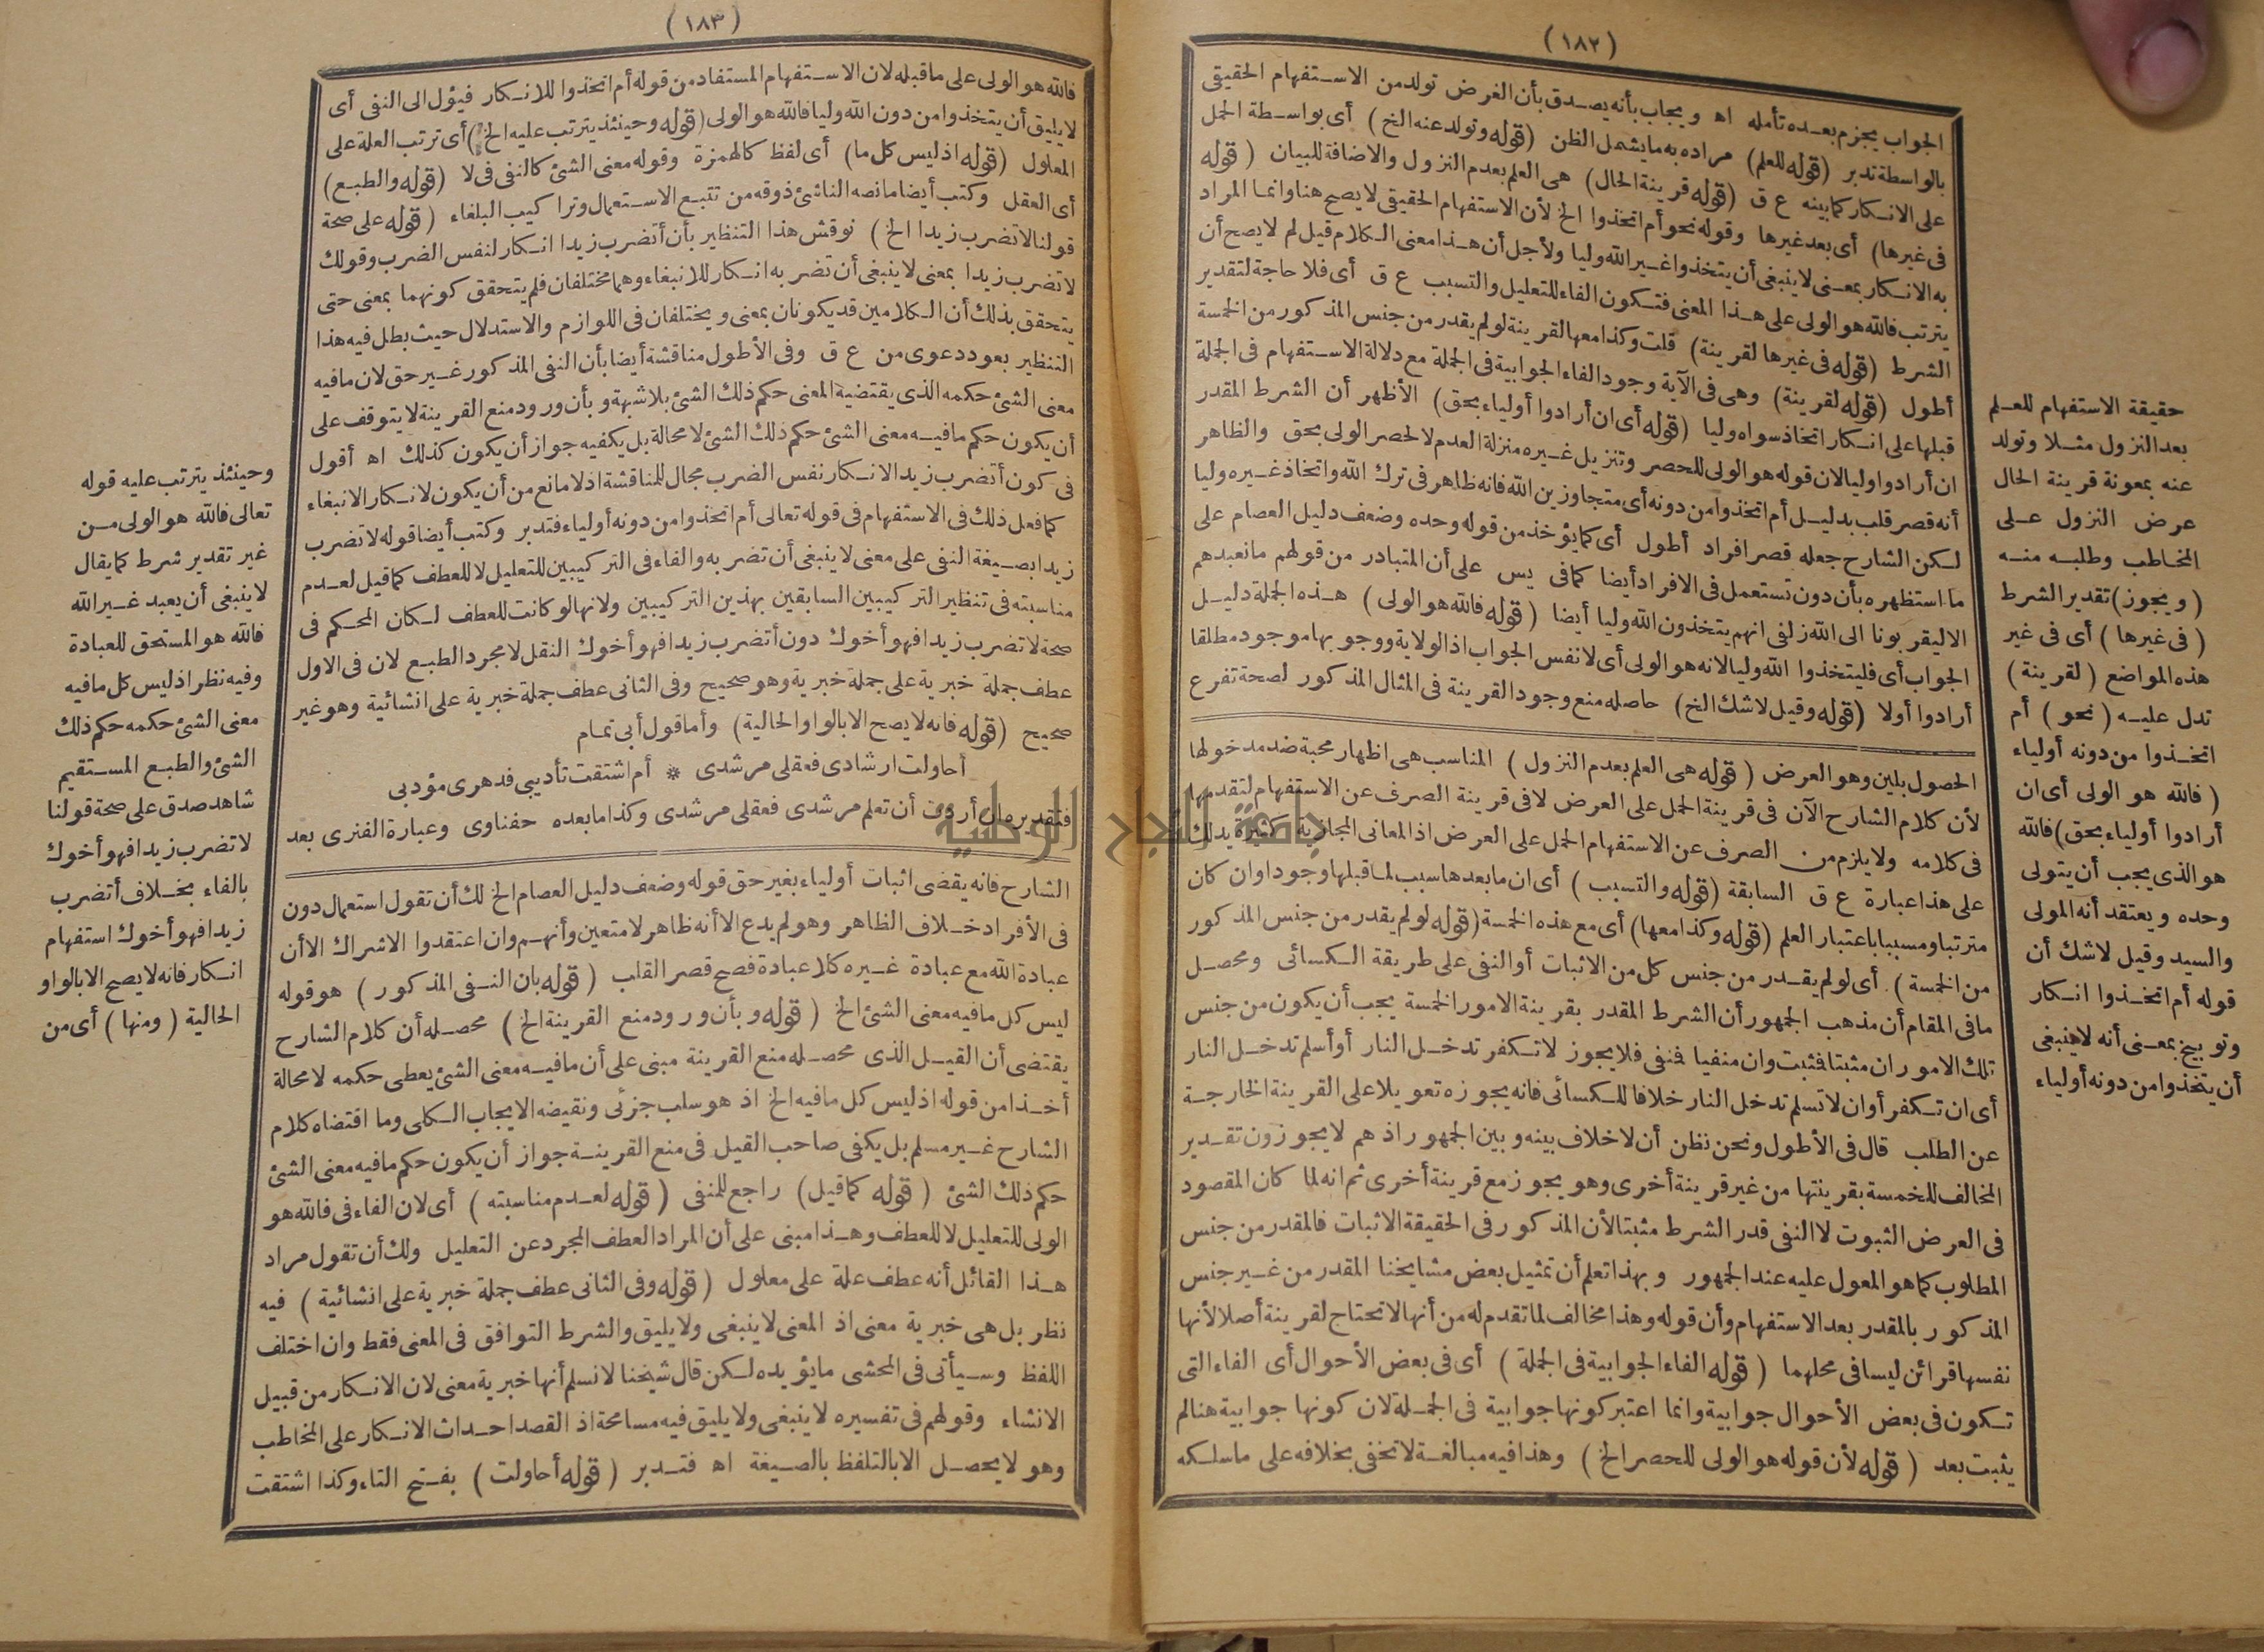 (١٨٢)
الجواب يجزم بعده تأمله اه ويجاب بأنه يصدق بأن الغرض تولد من الاستفهام الحقيقى
بالواسطة تدبر (قوله للعلم) مراده به ما يشمل الظن (قوله وتولد عنه الخ) أى بواسطة الحمل
على الانكار كما بينه ع ق (قوله قرينة الحال) هى العلم بعدم النزول والاضافة للبيان (قوله
فى غيرها) أى بعد غيرها وقوله نحو أم اتخذوا الخ لأن الاستفهام الحقيقى لا يصح هنا وانما المراد
به الانكار بمعنى لا ينبغى أن يتخذوا غير الله وليا ولأجل أن هذا معنى الكلام قيل لم لا يصح أن
يترتب فالله هو الولى على هذا المعنى فتكون الفاء للتعليل والتسبب ع ق أى فلا حاجة لتقدير
الشرط (قوله فى غيرها لقرينة) قلت وكذا معها القرينة لو لم يقدر من جنس المذكور من الخمسة
أطول (قوله لقرينة) وهى فى الآية وجود الفاء الجوابية فى الجملة مع دلالة الاستفهام فى الجملة
قبلها على انكار اتخاذ سواه وليا (قوله أى ان أرادوا أولياء بحق) الأظهر أن الشرط المقدر
ان أرادوا وليا لان قوله هو الولى للحصر وتنزيل غيره منزلة العدم لا لحصر الولى بحق والظاهر
أنه قصر قلب بدليل أم اتخذوا من دونه أى متجاوزين الله فانه ظاهر فى ترك الله واتخاذ غيره وليا
لكن الشارح جعله قصر افراد أطول أى كما يؤخذ من قوله وحده وضعف دليل العصام على
ما استظهره بأن دون تستعمل فى الافراد أيضا كما فى يس على أن المتبادر من قولهم ما نعبدهم
الا ليقربونا الى الله زلفى انهم يتخذون الله وليا أيضا (قوله فالله هو الولى) هذه الجملة دليل
الجواب أى فليتخذوا الله وليا لانه هو الولى أى لا نفس الجواب اذ الولاية ووجوبها موجود مطلقا
أرادوا أولا (قوله وقيل لا شك الخ) حاصله منع وجود القرينة فى المثال المذكور لصحة تفرع
الحصول بلين وهو العرض (قوله هى العلم بعدم النزول) المناسب هى اظهار محبة ضد مدخولها
لأن كلام الشارح الآن فى قرينة الحمل على العرض لا فى قرينة الصرف عن الاستفهام لتقدمها
فى كلامه ولا يلزم من الصرف عن الاستفهام الحمل على العرض اذ المعانى المجازية كثيرة يدلك
على هذا عبارة ع ق السابقة (قوله والتسبب) أى ان ما بعدها سبب لما قبلها وجودا وان كان
مترتبا ومسببا باعتبار العلم (قوله وكذا معها) أى مع هذه الخمسة (قوله لو لم يقدر من جنس المذكور
من الخمسة) أى لو لم يقدر من جنس كل من الاثبات أو النفى على طريقة الكسائى ومحصل
ما فى المقام أن مذهب الجمهور أن الشرط المقدر بقرينة الامور الخمسة يجب أن يكون من جنس
تلك الامور ان مثبتا فثبت وان منفيا فنفى فلا يجوز لا تكفر تدخل النار أو أسلم تدخل النار
أى ان تكفر أو ان لا تسلم تدخل النار خلافا للكسائى فانه يجوزه تعويلا على القرينة الخارجة
عن الطلب قال فى الأطول ونحن نظن أن لا خلاف بينه وبين الجمهور اذ هم لا يجوزون تقدير
المخالف للخمسة بقرينتها من غير قرينة أخرى وهو يجوز مع قرينة أخرى ثم انه لما كان المقصود
فى العرض الثبوت لا النفى قدر الشرط مثبتا لأن المذكور فى الحقيقة الاثبات فالمقدر من جنس
المطلوب كما هو المعول عليه عند الجمهور وبهذا تعلم أن تمثيل بعض مشايخنا المقدر من غير جنس
المذكور بالمقدر بعد الاستفهام وأن قوله وهذا مخالف لما تقدم له من أنها لا تحتاج لقرينة أصلا لأنها
نفسها قرائن ليسا فى محلهما (قوله الفاء الجوابية فى الجملة) أى فى بعض الأحوال أى الفاء التى
تكون فى بعض الأحوال جوابية وانما اعتبر كونها جوابية فى الجملة لان كونها جوابية هنا لم
يثبت بعد (قوله لأن قوله هو الولى للحصر الخ) وهذا فيه مبالغة لا تخفى بخلافه على ما سلكه
حقيقة الاستفهام للعلم
بعد النزول مثلا وتولد
عنه بمعونة قرينة الحال
عرض النزول على
المخاطب وطلبه منه
(ويجوز) تقدير الشرط
(فى غيرها) أى فى غير
هذه المواضع (لقرينة)
تدل عليه (نحو) أم
اتخذوا من دونه أولياء
(فالله هو الولى أى ان
أرادوا أولياء بحق) فالله
هو الذى يجب أن يتولى
وحده ويعتقد أنه المولى
والسيد وقيل لا شك أن
قوله أم اتخذوا انكار
وتوبيخ بمعنى أنه لا ينبغى
أن يتخذوا من دونه أولياء
(١٨٣)
فالله هو الولى على ما قبله لان الاستفهام المستفاد من قوله أم اتخذوا للانكار فيؤل الى النفى أى
لا يليق أن يتخذوا من دون الله وليا فالله هو الولى (قوله وحينئذ يترتب عليه الخ) أى ترتب العلة على
المعلول (قوله اذ ليس كل ما) أى لفظ كالهمزة وقوله معنى الشئ كالنفى فى لا (قوله والطبع)
أى العقل وكتب أيضا ما نصه الناشئ ذوقه من تتبع الاستعمال وتراكيب البلغاء (قوله على صحة
قولنا لا تضرب زيدا الخ) نوقش هذا التنظير بأن أتضرب زيدا انكار لنفس الضرب وقولك
لا تضرب زيدا بمعنى لا ينبغى أن تضربه انكار للانبغاء وهما مختلفان فلم يتحقق كونهما بمعنى حتى
يتحقق بذلك أن الكلامين قد يكونان بمعنى ويختلفان فى اللوازم والاستدلال حيث بطل فيه هذا
التنظير بعود دعوى من ع ق وفى الأطول مناقشة أيضا بأن النفى المذكور غير حق لان ما فيه
معنى الشئ حكمه الذى يقتضيه المعنى حكم ذلك الشئ بلا شبهة وبأن ورود منع القرينة لا يتوقف على
أن يكون حكم ما فيه معنى الشئ حكم ذلك الشئ لا محالة بل يكفيه جواز أن يكون كذلك اه أقول
فى كون أتضرب زيدا لانكار نفس الضرب مجال للمناقشة اذ لا مانع من أن يكون لانكار الانبغاء
كما فعل ذلك فى الاستفهام فى قوله تعالى أم اتخذوا من دونه أولياء فتدبر وكتب أيضا قوله لا تضرب
زيدا بصيغة النفى على معنى لا ينبغى أن تضربه والفاء فى التركيبين للتعليل لا للعطف كما قيل لعدم
مناسبته فى تنظير التركيبين السابقين بهذين التركيبين ولانها لو كانت للعطف لكان المحكم فى
صحة لا تضرب زيدا فهو أخوك دون أتضرب زيدا فهو أخوك النقل لا مجرد الطبع لان فى الاول
عطف جملة خبرية على جملة خبرية وهو صحيح وفى الثانى عطف جملة خبرية على انشائية وهو غير
صحيح (قوله فانه لا يصح الا بالواو الحالية) وأما قول أبى تمام
أحاولت ارشادى فعقلى مرشدى * أم اشتقت تأديبى فدهرى مؤدبى
فتقديره ان أردت أن تعلم مرشدى فعقلى مرشدى وكذا ما بعده حفناوى وعبارة الفنرى بعد
الشارح فانه يقضى اثبات أولياء بغير حق قوله وضعف دليل العصام الخ لك أن تقول استعمال دون
فى الأفراد خلاف الظاهر وهو لم يدع الا أنه ظاهر لا متعين وأنهم وان اعتقدوا الاشراك الا أن
عبادة الله مع عبادة غيره كلا عبادة فصح قصر القلب (قوله بان النفى المذكور) هو قوله
ليس كل ما فيه معنى الشئ الخ (قوله وبأن ورود منع القرينة الخ) محصله أن كلام الشارح
يقتضى أن القيل الذى محصله منع القرينة مبنى على أن ما فيه معنى الشئ يعطى حكمه لا محالة
أخذا من قوله اذ ليس كل ما فيه الخ اذ هو سلب جزئى ونقيضه الايجاب الكلى وما اقتضاه كلام
الشارح غير مسلم بل يكفى صاحب القيل فى منع القرينة جواز أن يكون حكم ما فيه معنى الشئ
حكم ذلك الشئ (قوله كما قيل) راجع للمنفى (قوله لعدم مناسبته) أى لان الفاء فى فالله هو
الولى للتعليل لا للعطف وهذا مبنى على أن المراد العطف المجرد عن التعليل ولك أن تقول مراد
هذا القائل أنه عطف علة على معلول (قوله وفى الثانى عطف جملة خبرية على انشائية) فيه
نظر بل هى خبرية معنى اذ المعنى لا ينبغى ولا يليق والشرط التوافق فى المعنى فقط وان اختلف
اللفظ وسيأتى فى المحشى ما يؤيده لكن قال شيخنا لا نسلم أنها خبرية معنى لان الانكار من قبيل
الانشاء وقولهم فى تفسيره لا ينبغى ولا يليق فيه مسامحة اذ القصد احداث الانكار على المخاطب
وهو لا يحصل الا بالتلفظ بالصيغة اه فتدبر (قوله أحاولت) بفتح التاء وكذا اشتقت
وحينئذ يترتب عليه قوله
تعالى فالله هو الولى من
غير تقدير شرط كما يقال
لا ينبغى أن يعبد غير الله
فالله هو المستحق للعبادة
وفيه نظر اذ ليس كل ما فيه
معنى الشئ حكمه حكم ذلك
الشئ والطبع المستقيم
شاهد صدق على صحة قولنا
لا تضرب زيدا فهو أخوك
بالفاء بخلاف أتضرب
زيدا فهو أخوك استفهام
انكار فانه لا يصح الا بالواو
الحالية (ومنها) أى من
جامعة النجاح الوطنية